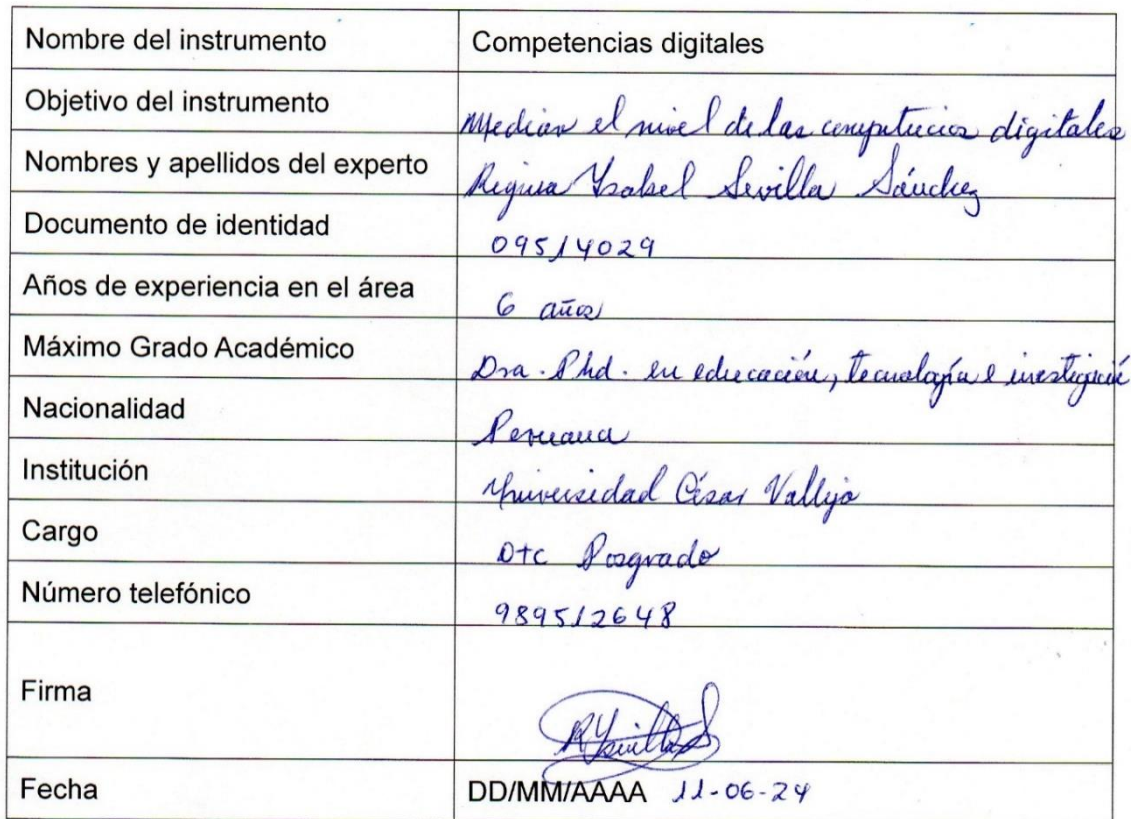 Nombre del instrumento Competencias digitales
Objetivo del instrumento Medir el nivel de las competencias digitales
Nombres y apellidos del experto Regina Ysabel Sevilla Sánchez
Documento de identidad 09514029
Años de experiencia en el área 6 años
Máximo Grado Académico Dra. Phd. en educación, tecnología e investigación
Nacionalidad Peruana
Institución Universidad César Vallejo
Cargo Dtc Posgrado
Número telefónico 989512648
Firma RYSevillaS
Fecha DD/MM/AAAA 11-06-24